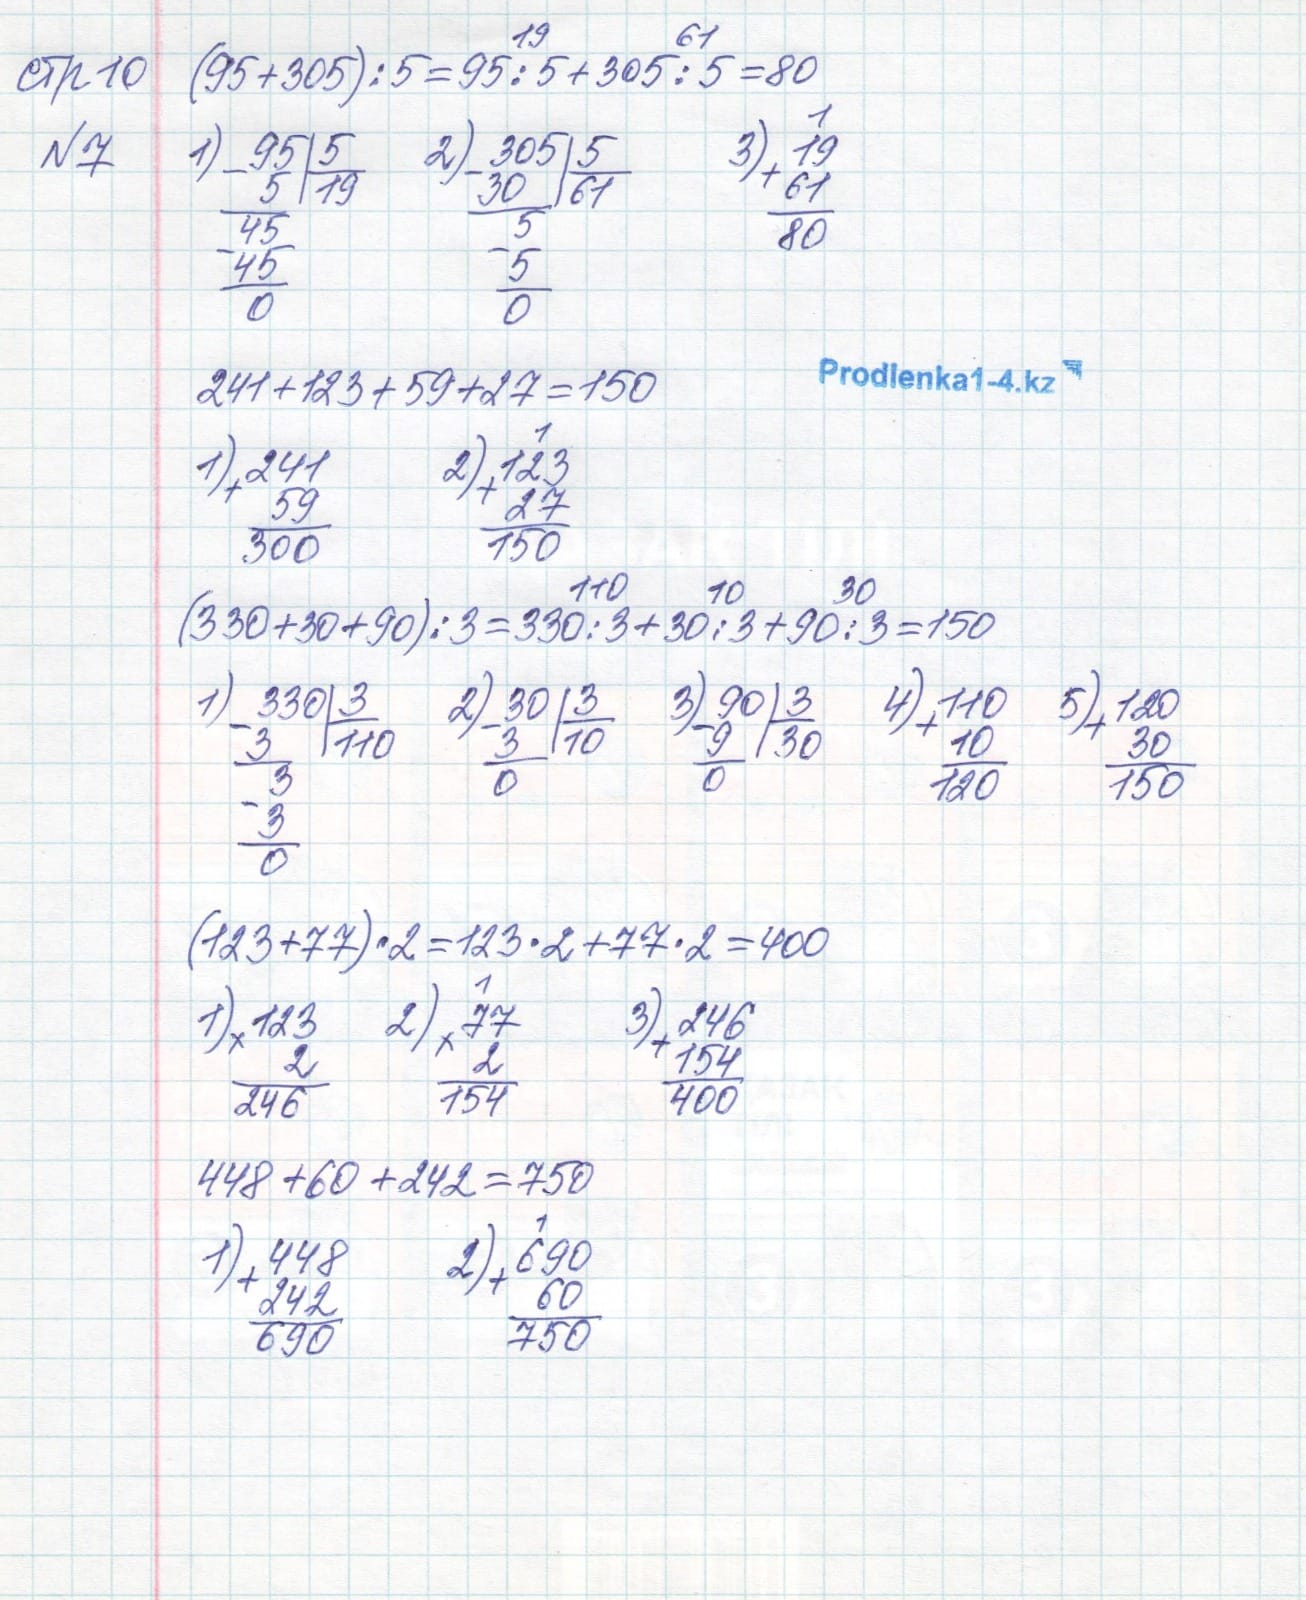 стр 10 (95+305):5=95:5+305:5=80
19 61
№7 1) 95 5 2) 305 5 3) 19
- 5 19 - 30 61 + 61
45 5 80
- 45 - 5
0 0
1
241+123+59+27=150
Prodlenka1-4.kz
1) 241 2) 123
+ 59 + 27
300 150
1
110 10 30
(330+30+90):3=330:3+30:3+90:3=150
1) 330 3 2) 30 3 3) 90 3 4) 110 5) 120
- 3 110 - 3 10 - 9 30 + 10 + 30
3 0 0 120 150
- 3
0
(123+77)·2=123·2+77·2=400
1
1) 123 2) 77 3) 246
× 2 × 2 + 154
246 154 400
448+60+242=750
1
1) 448 2) 690
+ 242 + 60
690 750